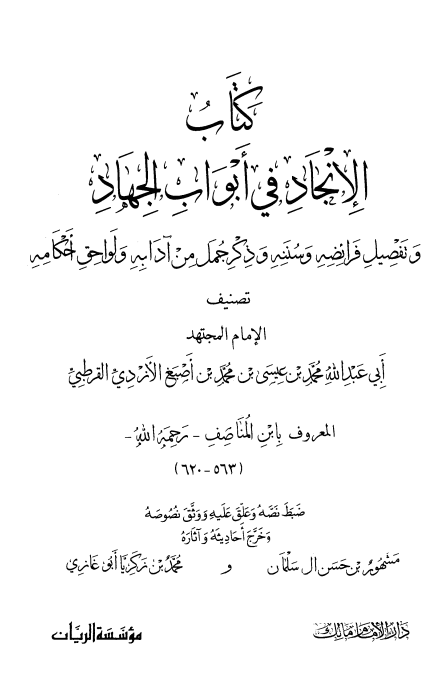 كِتَابُ
الإِنْجَادِ فِي أَبْوَابِ الجِهَادِ
وَتَفْصِيلِ فَرَائِضِهِ وَسُنَنِهِ وَذِكْرِ جُمَلٍ مِنْ آدَابِهِ وَلَوَاحِقِ أَحْكَامِهِ
تصنيف
الإمام المجتهد
أَبِي عَبْدِ اللهِ مُحَمَّد بن عِيسَى بن مُحَمَّد بن أَصْبَغَ الأَزْدِيِّ القُرْطُبِيِّ
المعروف بِابْنِ المُنَاصِفِ - رَحِمَهُ اللهُ -
(٥٦٣-٦٢٠)
ضَبَطَ نَصَّهُ وَعَلَّقَ عَلَيْهِ وَوَثَّقَ نُصُوصَهُ
وَخَرَّجَ أَحَادِيثَهُ وَآثَارَهُ
مَشْهُور بن حَسَن آل سَلْمَان و مُحَمَّد بن زَكَرِيَّا أَبُو غَازِي
دَارُ الإِمَامِ مَالِك مؤسَّسَة الريَّان